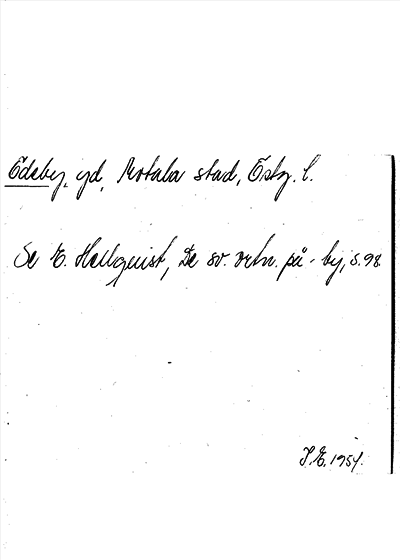 Edeby, gd, Motala stad, Östg. l.
Se E. Hellquist, De sv. ortn. på -by, s. 98.
J. E. 1954.